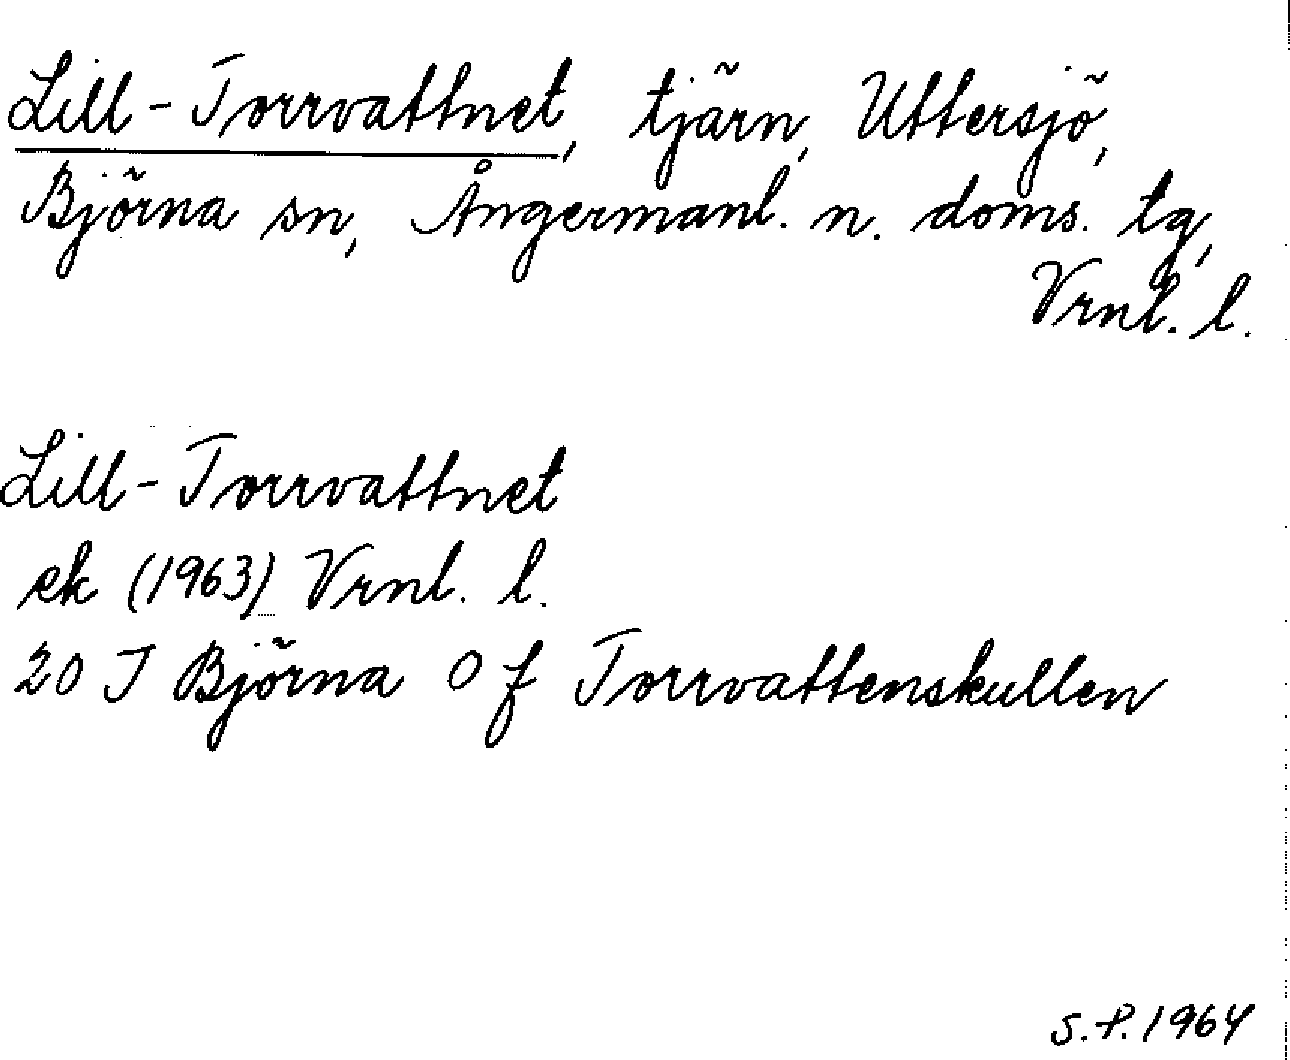 Lill-Torrvattnet, tjärn, Uttersjö,
Björna sn, Ångermanl. n. doms. tg,
Vrnl. l.
Lill-Torrvattnet
ek (1963) Vrnl. l.
20 J Björna O f Torrvattenskullen
S.P. 1964